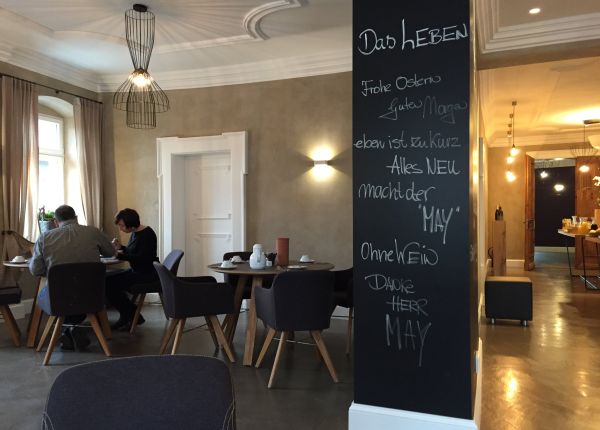 Das LEBEN
Frohe Ostern
Guten Morgen
eben ist zu kurz
Alles NEU
macht der
"MAY"
Ohne WEIN
DANKE
HERR
MAY